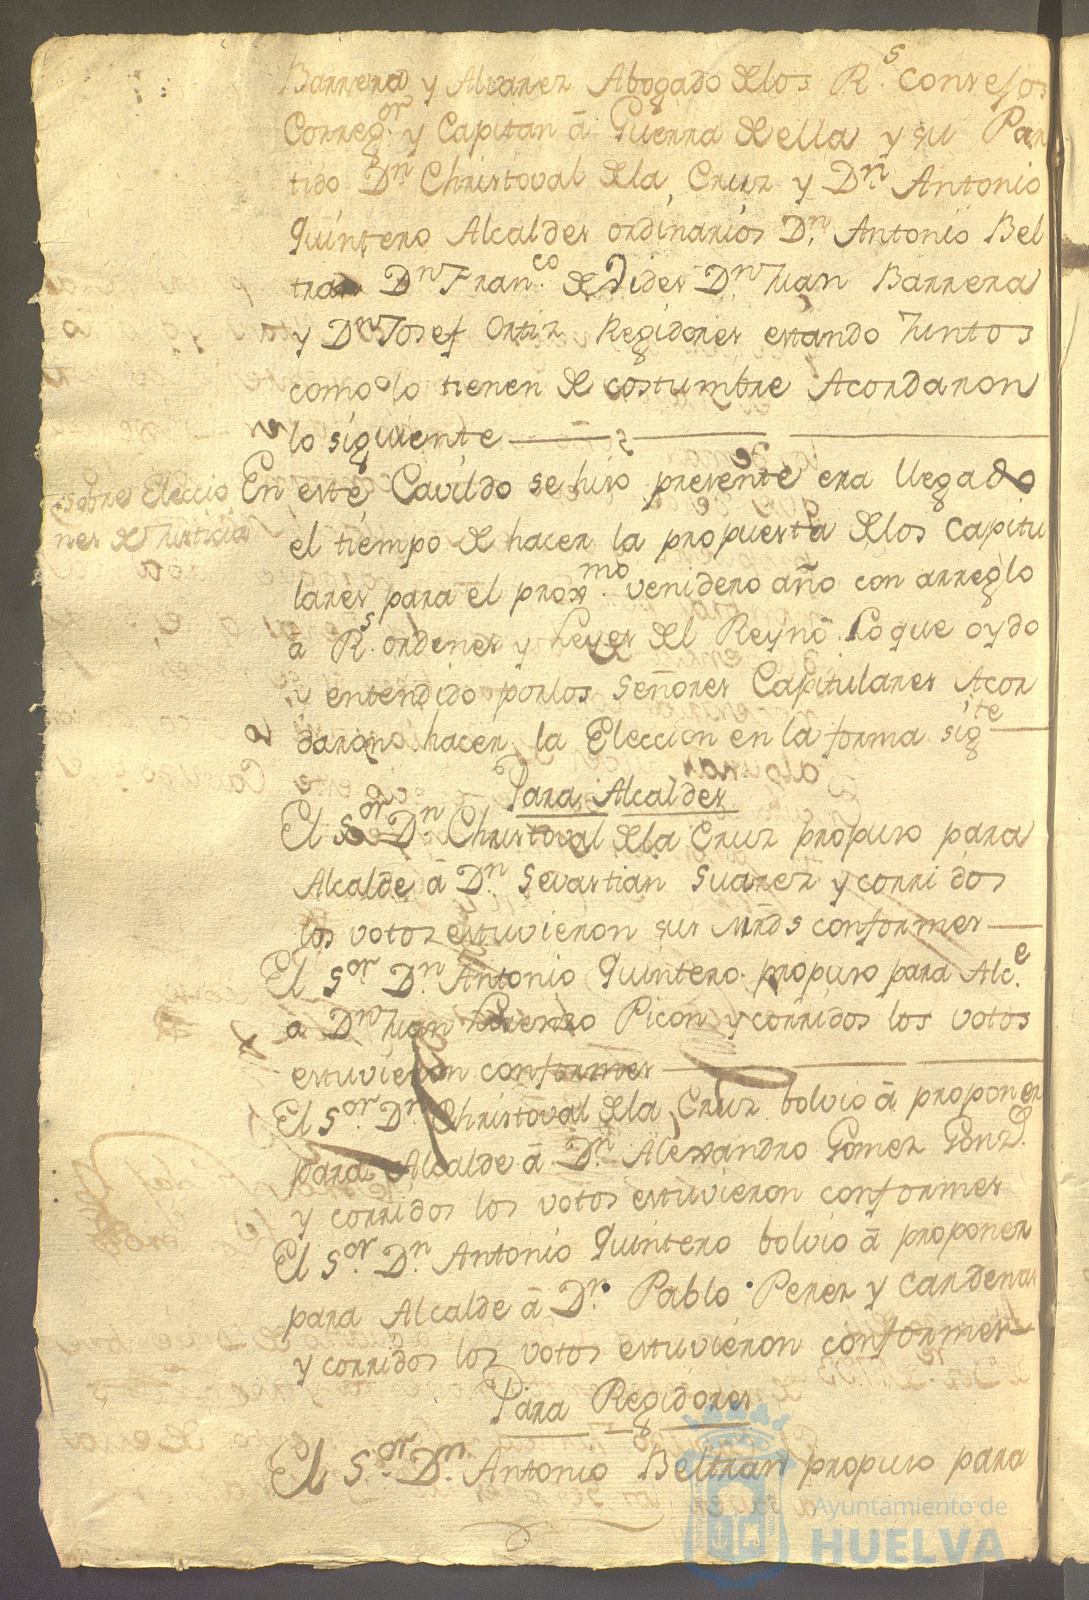 Barrera y Alvarez Abogado de los R.s Consejos
Correg.or y Capitan â Guerra de ella y su Par
tido Dn. Christoval de la Cruz y Dn. Antonio
Quintero Alcaldes ordinarios Dn. Antonio Bel
tran Dn Fran.co de Dn Juan Barrera
y Dn Josef Ortiz Regidores estando Juntos
como lo tienen de costumbre Acordaron
lo siguiente
Sobre Eleccio
nes de Justicia
En este Cavildo se hiso presente era llegado
el tiempo de hacer la propuesta de los Capitu
lares para el prox.mo venidero año con arreglo
â R.s ordenes y Leyes del Reyno Lo que oydo
y entendido por los Señores Capitulares Acor
daron hacer la Eleccion en la forma sig.te
Para Alcaldes
El S.or Dn Christoval de la Cruz propuso para
Alcalde â Dn. Sevastian Suarez y corridos
los votos estuvieron sus Mrds conformes
El S.or Dn. Antonio Quintero propuso para Alc.e
a Dn Juan Lorenzo Picon y corridos los votos
estuvieron conformes
El S.or Dn Christoval de la Cruz bolvio â proponer
para Alcalde â Dn. Alexandro Gomez
y corridos los votos estuvieron conformes
El S.or Dn Antonio Quintero bolvio â proponer
para Alcalde â Dn. Pablo Perez y Cardenas
y corridos los votos estuvieron conformes
Para Regidores
El S.or Dn. Antonio Beltran propuso para
Ayuntamiento de
HUELVA